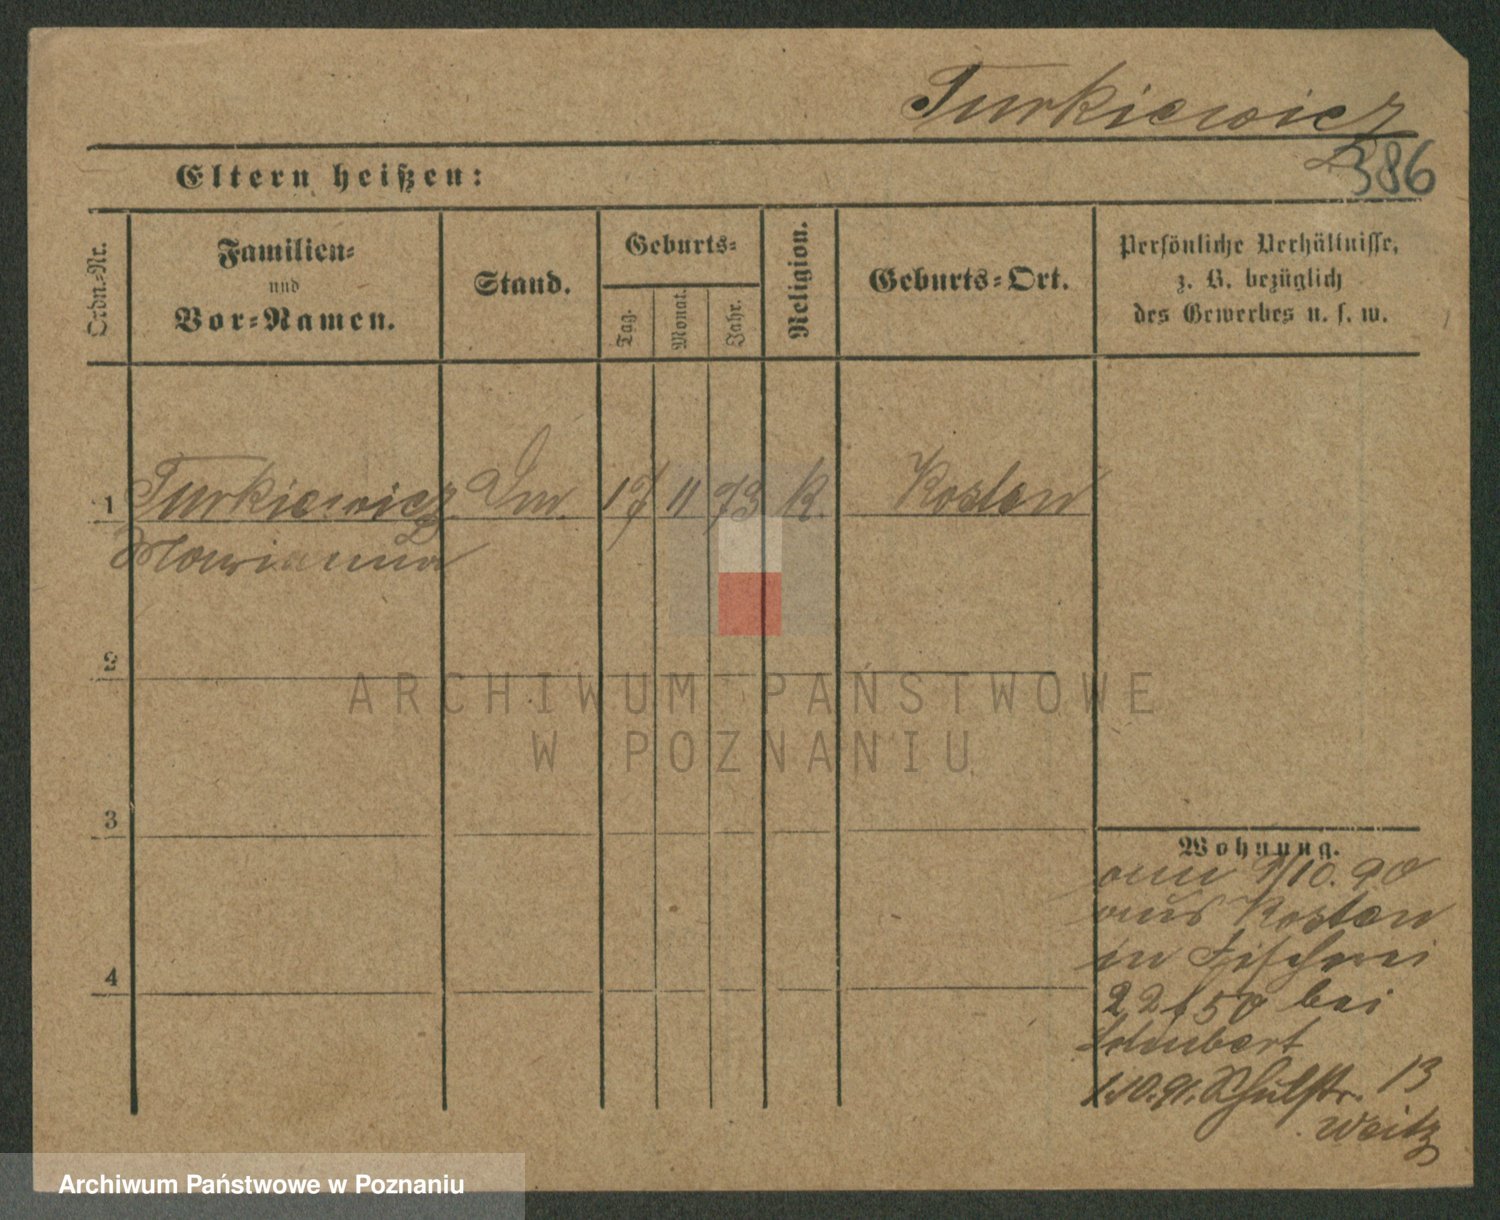 Turkiewicz
386
Eltern heißen:
Ordn.-Nr.
Familien-
und
Vor-Namen.
Stand.
Geburts-
Tag.
Monat.
Jahr.
Religion.
Geburts-Ort.
Persönliche Verhältnisse,
z. B. bezüglich
des Gewerbes u. s. w.
1 Turkiewicz 17 11 73 K. Kosten
Marianna
2
3
4
Wohnung.
/10. 90
aus Kosten
in Fischerei
bei
Schubert
1.10.91. Schulstr. 13
Weitz
ARCHIWUM PAŃSTWOWE
W POZNANIU
Archiwum Państwowe w Poznaniu